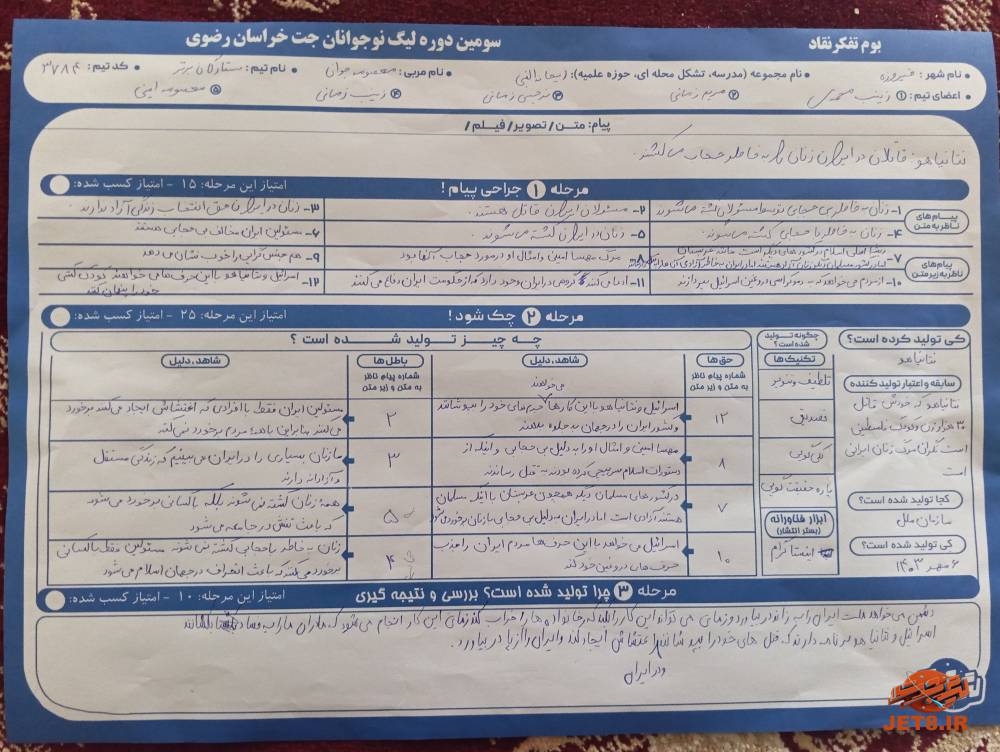 بوم تفکر نقاد
سومین دوره لیگ نوجوانان جت خراسان رضوی
نام شهر: فیروزه
نام مجموعه (مدرسه، تشکل محله ای، حوزه علمیه):
نام مربی: معصومه جوان
نام تیم: ستارگان برتر
کد تیم: ۳۷۸۴
اعضای تیم: ۱ زینب محمدی ۲ مریم زمانی ۳ نرجس زمانی ۴ زینب زمانی ۵ معصومه امینی
پیام: متن/تصویر/فیلم/
نتانیاهو: قاتلان در ایران زنان را به خاطر حجاب می کشند.
مرحله ۱ جراحی پیام!
امتیاز این مرحله: ۱۵ - امتیاز کسب شده:
پیام های ناظر به متن
۱- زنان به خاطر بی حجابی توسط مسئولان کشته می شوند
۲- مسئولان ایران قاتل هستند.
۳- زنان در ایران حق انتخاب زندگی آزاد ندارند.
۴- زنان به خاطر با حجابی کشته می شوند.
۵- زنان در ایران کشته می شوند.
۶- مسئولین ایران مخالف بی حجابی هستند
پیام های ناظر به زیر متن
۷-
۸- مرگ مهسا امینی و امثال او در مورد حجاب آنها بود
۹- هم جنس گرایی را خوب نشان می دهد
۱۰- از مردم می خواهد که به دموکراسی دروغین اسرائیل بپردازند
۱۱- ادعا می کند گروهی در ایران وجود دارد که از حکومت ایران دفاع می کنند
۱۲- اسرائیل و نتانیاهو با این حرف های خواهند کودک کشی خود را پنهان کند
مرحله ۲ چک شود!
امتیاز این مرحله: ۲۵ - امتیاز کسب شده:
کی تولید کرده است؟
نتانیاهو
سابقه و اعتبار تولید کننده
نتانیاهو که خودش قاتل
۳۰ هزار زن و کودک فلسطینی
است نگران مرگ زنان ایرانی
است
کجا تولید شده است؟
سازمان ملل
کی تولید شده است؟
۶ مهر ۱۴۰۳
چگونه تولید شده است؟
تکنیک ها
تلطیف و تنویر
تصدیق
کلی گویی
پاره حقیقت گویی
ابزار فناورانه
(بستر انتشار)
اینستاگرام
چه چیز تولید شده است ؟
حق ها
شماره پیام ناظر به متن و زیر متن
شاهد، دلیل
می خواهند
۱۲
اسرائیل و نتانیاهو با این کارها جرم های خود را بپوشانند
و کشور ایران را در جهان بد جلوه بدهند
۸
مهسا امینی و امثال او را به دلیل بی حجابی و اینکه از
دستورات اسلام سرپیچی کرده بودند به قتل رساندند
۷
در کشورهای مسلمان دیگر همچون عربستان با اینکه مسلمان
هستند آزادی است اما در ایران به دلیل بی حجابی با زنان برخورد می شود
۱۰
اسرائیل می خواهد با این حرف ها مردم ایران را جذب
حرف های دروغین خود کند
باطل ها
شماره پیام ناظر به متن و زیر متن
شاهد، دلیل
۲
مسئولین ایران فقط با افرادی که اغتشاش ایجاد می کنند برخورد
می کنند بنابراین با همه مردم برخورد نمی کند
۳
ما زنان بسیاری را در ایران می بینیم که زندگی مستقل
و آزادانه دارند
۵
همه زنان کشته نمی شوند بلکه با کسانی برخورد می شود
که باعث تنش در جامعه می شود
۴
زنان به خاطر با حجابی کشته نمی شوند مسئولین فقط با کسانی
برخورد می کنند که باعث انحراف در جهان اسلام می شود
مرحله ۳ چرا تولید شده است؟ بررسی و نتیجه گیری
امتیاز این مرحله: ۱۰ - امتیاز کسب شده:
دشمن می خواهد ملت ایران را به زانو در بیاورد و زمانی می تواند این کار را بکند که خانواده ها را خراب کند زمانی این کار انجام می شود که مادران ما را به فساد
اسرائیل و نتانیاهو برنامه دارند که قتل های خود را بپوشانند اغتشاش ایجاد کند و ایران را از پا در بیاورد.
در ایران
JET8.IR